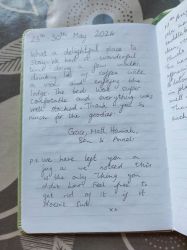 28th - 30th May 2024
What a delightful place to
stay. We had a wonderful
time doing a few walks,
drinking lots of coffee with
a view and enjoying the
lodge. The beds were super
comfortable and everything was
well stocked. Thank you so
much for the goodies.
Grace, Matt, Hannah,
Ben & Annali
P.S. We have left you a
jug as we noticed this
is the only thing you
didn't have! Feel free to
get rid of it if it
doesn't suit.
xx